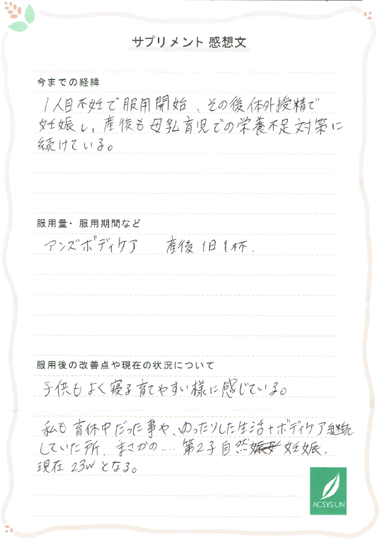 サプリメント 感想文
今までの経緯
1人目不妊で服用開始、その後体外授精で
妊娠し、産後も母乳育児での栄養不足対策に
続けている。
服用量・服用期間など
アンズボディケア 産後 1日1杯.
服用後の改善点や現在の状況について
子供もよく寝る育てやすい様に感じている。
私も育休中だった事や、ゆったりした生活+ボディケア継続
していた所、まさかの… 第2子自然妊娠.
現在23wとなる。
ACSYSUN